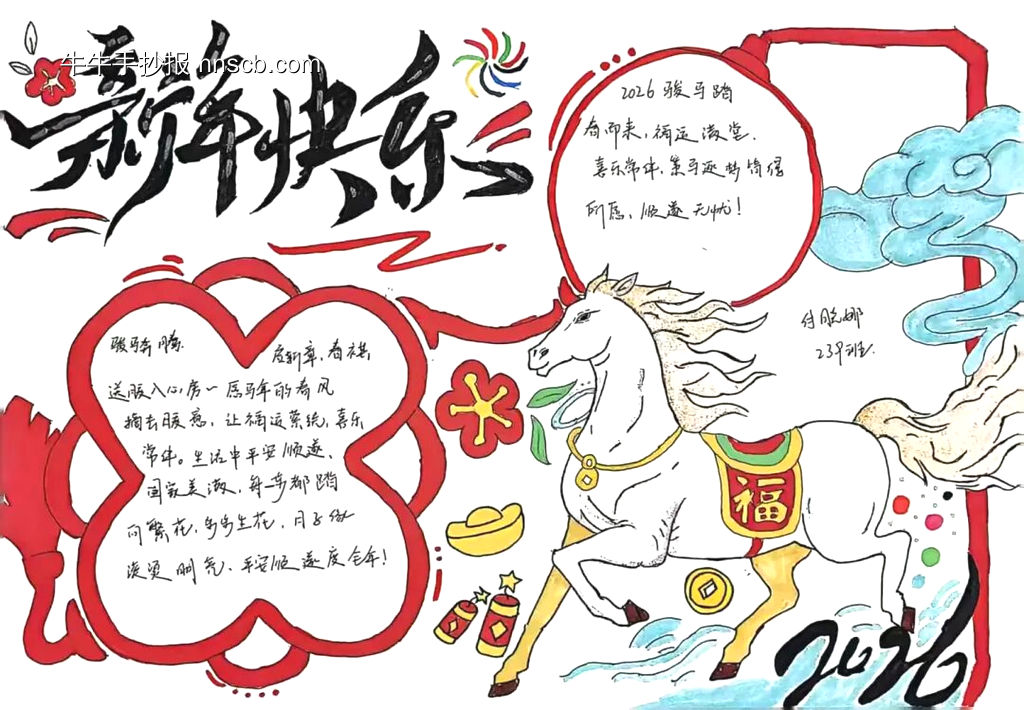 牛牛手抄报 nnscb.com
新年快乐
2026骏马踏
春而来，福运满堂，
喜乐常伴，策马逐梦皆得
所愿，顺遂无忧！
骏马奔腾 启新章，春祺
送暖入心房～愿马年的春风
捎去暖意，让福运萦绕，喜乐
常伴。生活中平安顺遂，
阖家美满，每一步都踏
向繁花，步步生花，月
平安顺遂度全年！
239班
福
2026